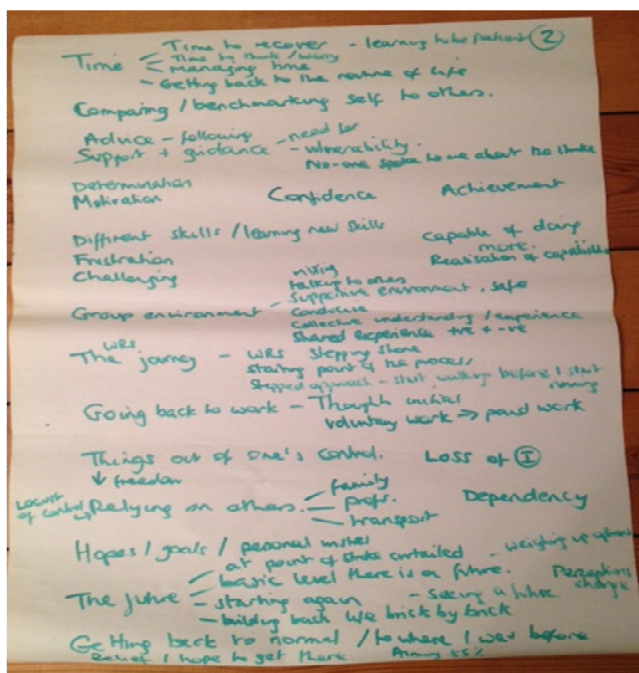 Time to recover - learning to be patient ②
Time - Time to think /
- Managing time
- Getting back to the routine of life
Comparing / benchmarking self to others.
Advice - following - need for
Support + guidance - vulnerability.
No-one spoke to me about the stroke
Determination
Motivation Confidence Achievement
Different skills / learning new skills Capable of doing
more.
Frustration Realisation of capabilities
Challenging
mixing
talking to others
Supportive environment, safe
Group environment - Conducive
Collective understanding / experience
Shared experience +ve + -ve
WRS
The journey - WRS stepping stone
starting point of the process
Stepped approach - start walking before I start
running
Going back to work - Though initial
voluntary work → paid work
Things out of one's control. Loss of Ⓘ
↓ freedom
Locust
of control → Relying on others. - family
- profs.
- transport
Dependency
Hopes / goals / personal wishes
at point of stroke curtailed - weighing up options
basic level there is a future. Perceptions
change
The future - starting again - Seeing a future
- building back life brick by brick
Getting back to normal / to where I was before
Relief / hope to get there Aiming 55%